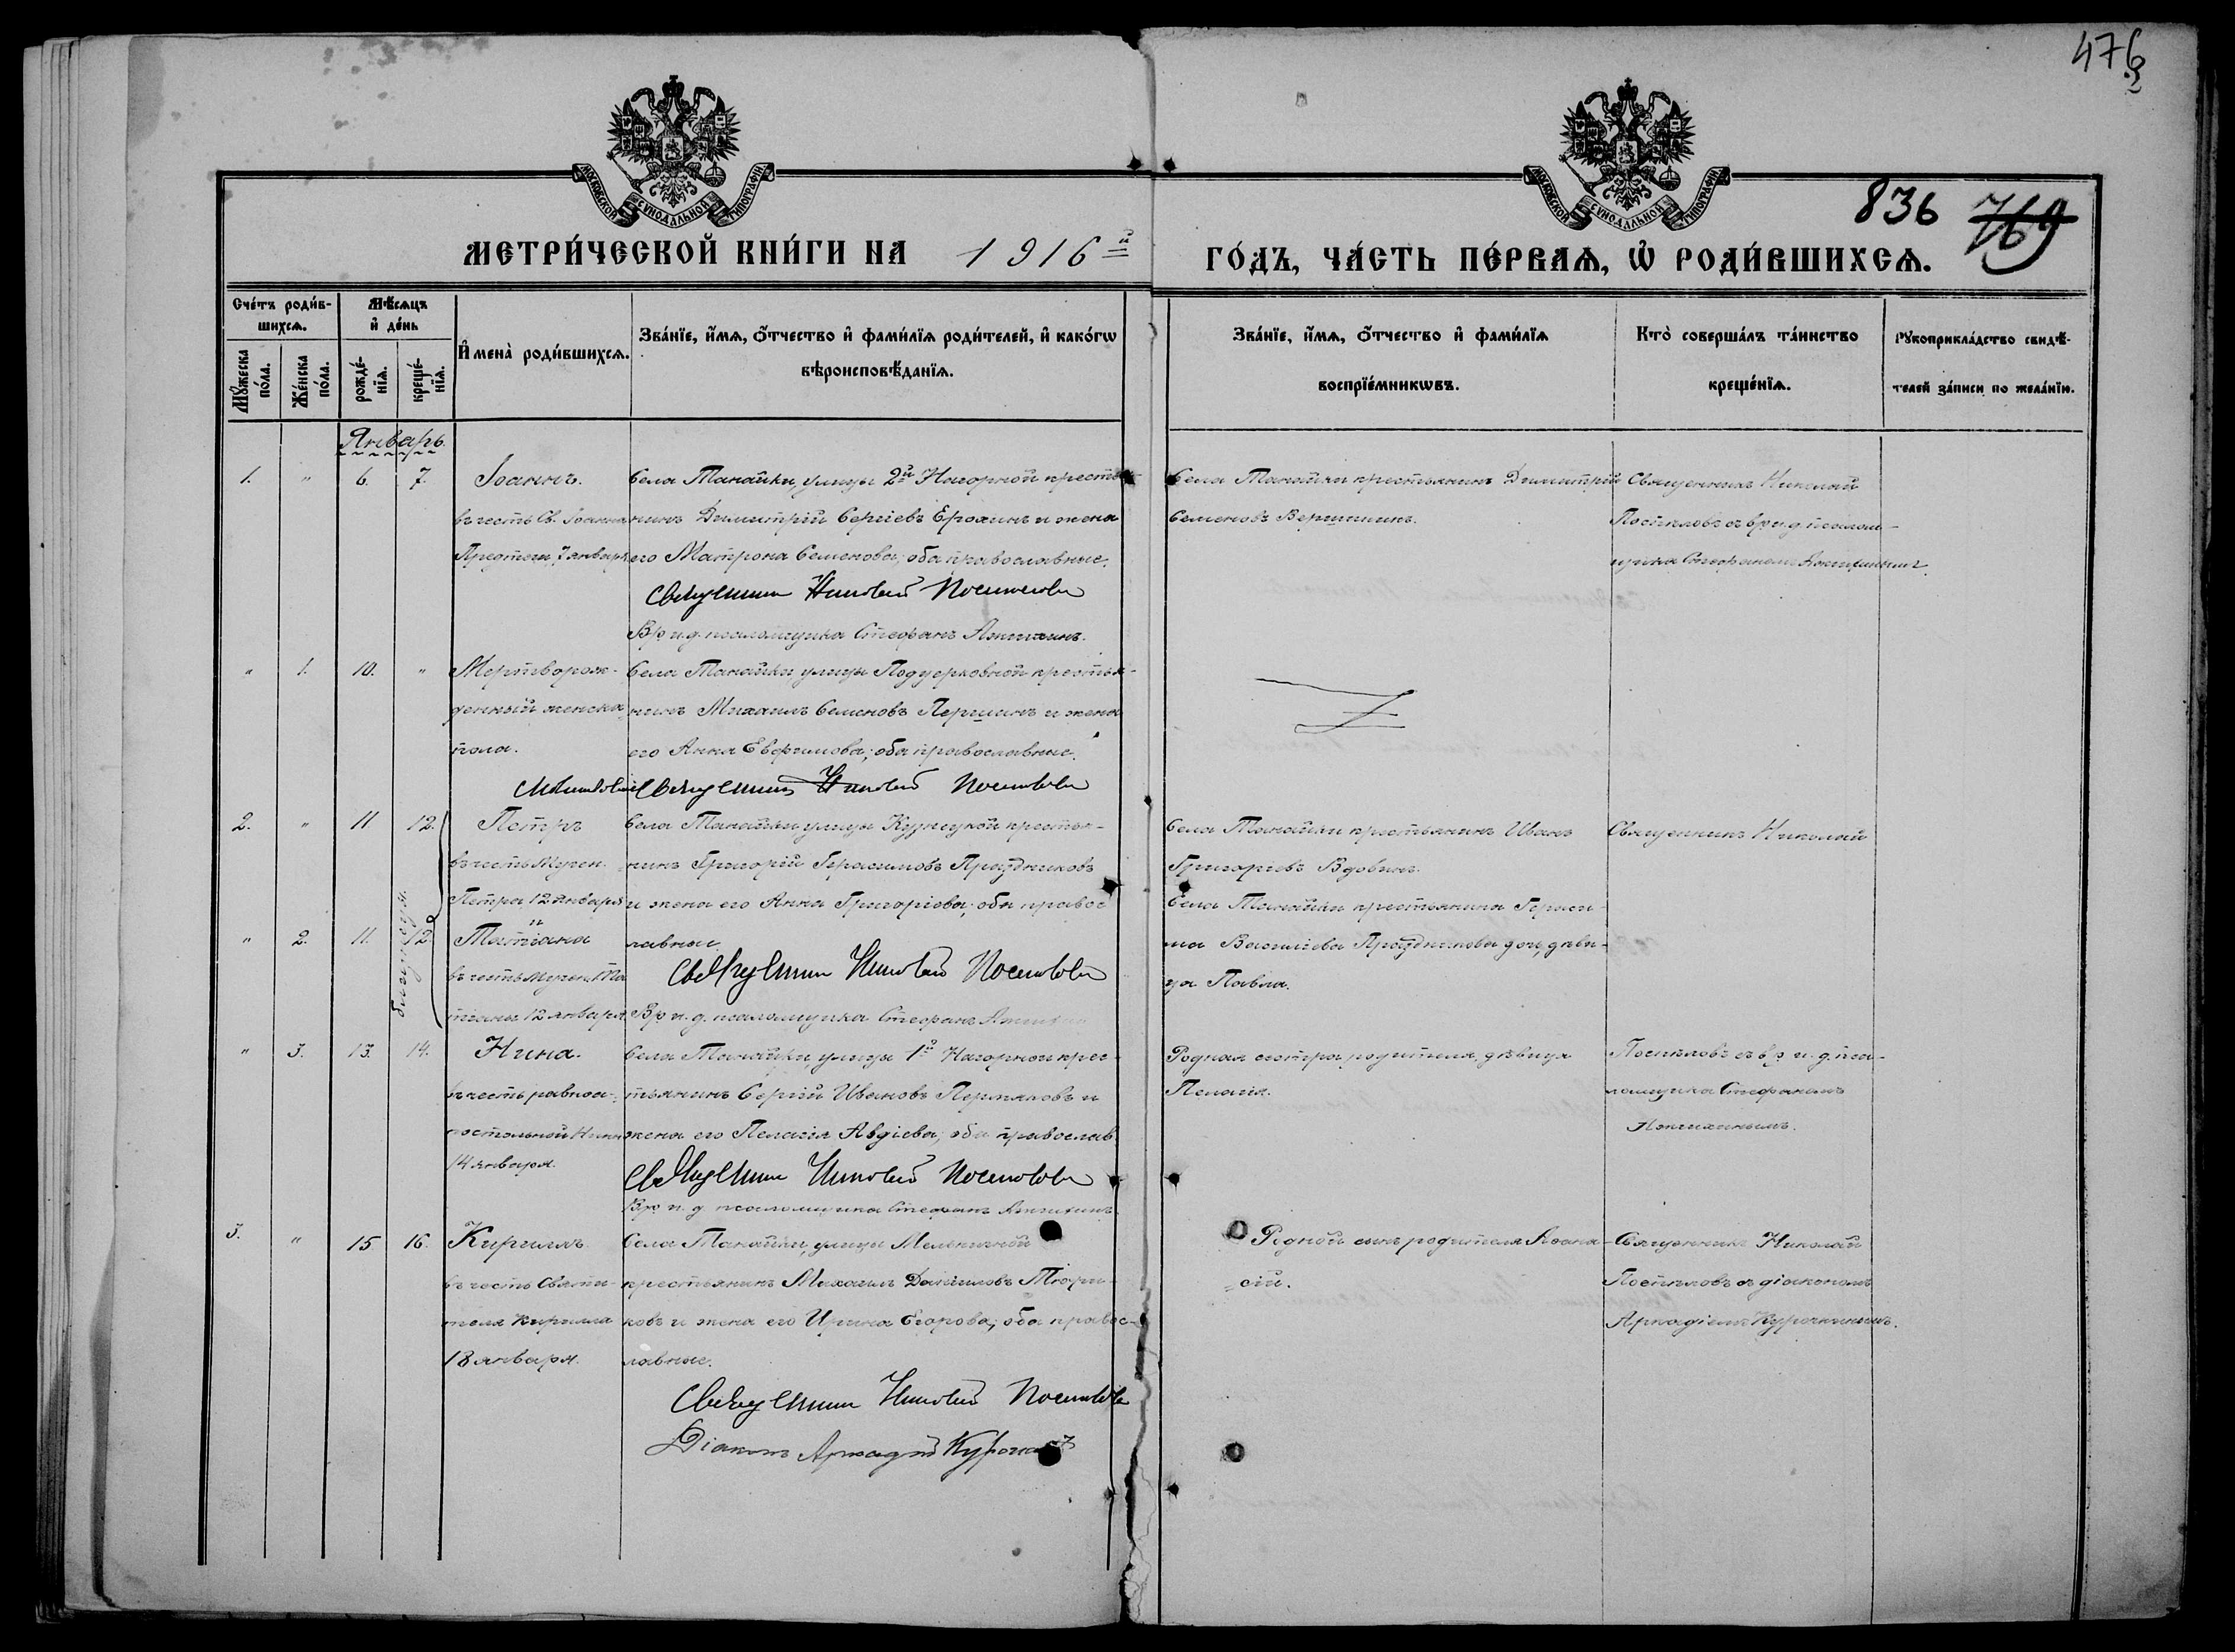 476
836 769
МОСКОВСКОЙ СѴНОДАЛЬНОЙ ТИПОГРАФІИ.
МОСКОВСКОЙ СѴНОДАЛЬНОЙ ТИПОГРАФІИ.
МЕТРИ́ЧЕСКОЙ КНИ́ГИ НА 1916й
ГО́ДЪ, ЧА́СТЬ ПЕ́РВАѦ, Ѡ҆ РОДИ́ВШИХСѦ.
Сче́тъ роди́в-
шихсѧ.
Мꙋ́жеска по́ла.
Же́нска по́ла.
Мѣ́сѧцъ
и҆ де́нь
рожде́-
нїѧ.
креще́-
нїѧ.
И҆мена̀ роди́вшихсѧ.
Зва́нїе, и҆́мѧ, ѻ҆́тчество и҆ фами́лїѧ роди́телей, и҆ како́гѡ
вѣроисповѣ́данїѧ.
Зва́нїе, и҆́мѧ, ѻ҆́тчество и҆ фами́лїѧ
воспрїе́мникѡвъ.
Кто̀ соверша́лъ та́инство
креще́нїѧ.
Рꙋкоприкла́дство свидѣ́-
телей за́писи по жела́нїю.
Январь.
1. " 6. 7. Іоаннъ.
въ честь Св. Іоанна
Предтечи, 7 января
Села Танайки, улицы 2й Нагорной крестья-
нинъ Димитрій Сергіевъ Ерохинъ и жена
его Матрона Семенова; оба православные.
Священникъ Николай Поспѣловъ
Вр. и. д. псаломщика Стефанъ
Села Танайки крестьянинъ Димитрій
Семеновъ Вершининъ.
Священникъ Николай
Поспѣловъ съ вр. и. д. псалом-
щика Стефаномъ
" 1. 10. " Мертворож-
денный женска
пола.
Села Танайки, улицы Подцерковной крестья-
нинъ Михаилъ Семеновъ Першинъ и жена
его Анна Евфимова; оба православные.
Священникъ Николай Поспѣловъ
2. " 11 12. Петръ
въ честь Мучен.
Петра 12 января
и
" 2. 11. 12. Татіана
въ честь Мучен. Та
тіаны 12 января.
близнецы
Села Танайки улицы Кузнецкой крестья-
нинъ Григорій Герасимовъ Праздниковъ
и жена его Анна Григоріева; оба правос
лавные.
Священникъ Николай Поспѣловъ
Вр. и. д. псаломщика Стефанъ
Села Танайки крестьянинъ Иванъ
Григоріевъ Вдовинъ.
Села Танайки крестьянина Гераси
ма Василіева Праздникова дочь, дѣви-
ца Павла.
Священникъ Николай
" 3. 13. 14. Нина.
въ честь равноа-
постольной Нины
14 января.
Села Танайки, улицы 1й Нагорной крес-
тьянинъ Сергій Ивановъ Пермяковъ и
жена его Пелагія Авдіева; оба православ.
Священникъ Николай Поспѣловъ
Вр. и. д. псаломщика Стефанъ
Родная сестра родителя, дѣвица
Пелагія.
Поспѣловъ съ вр. и. д. пса-
ломщика Стефаномъ
3. " 15 16. Кириллъ
въ честь Святи-
теля Кирилла
18 января.
Села Танайки, улицы Мельничной
крестьянинъ Михаилъ Даниловъ Тюфи-
ковъ и жена его Ирина Егорова; оба правос-
лавные.
Священникъ Николай Поспѣловъ
Діаконъ Аркадій Курочкинъ
Родной сынъ родителя Афана-
сій.
Священникъ Николай
Поспѣловъ съ діакономъ
Аркадіемъ Курочкинымъ.